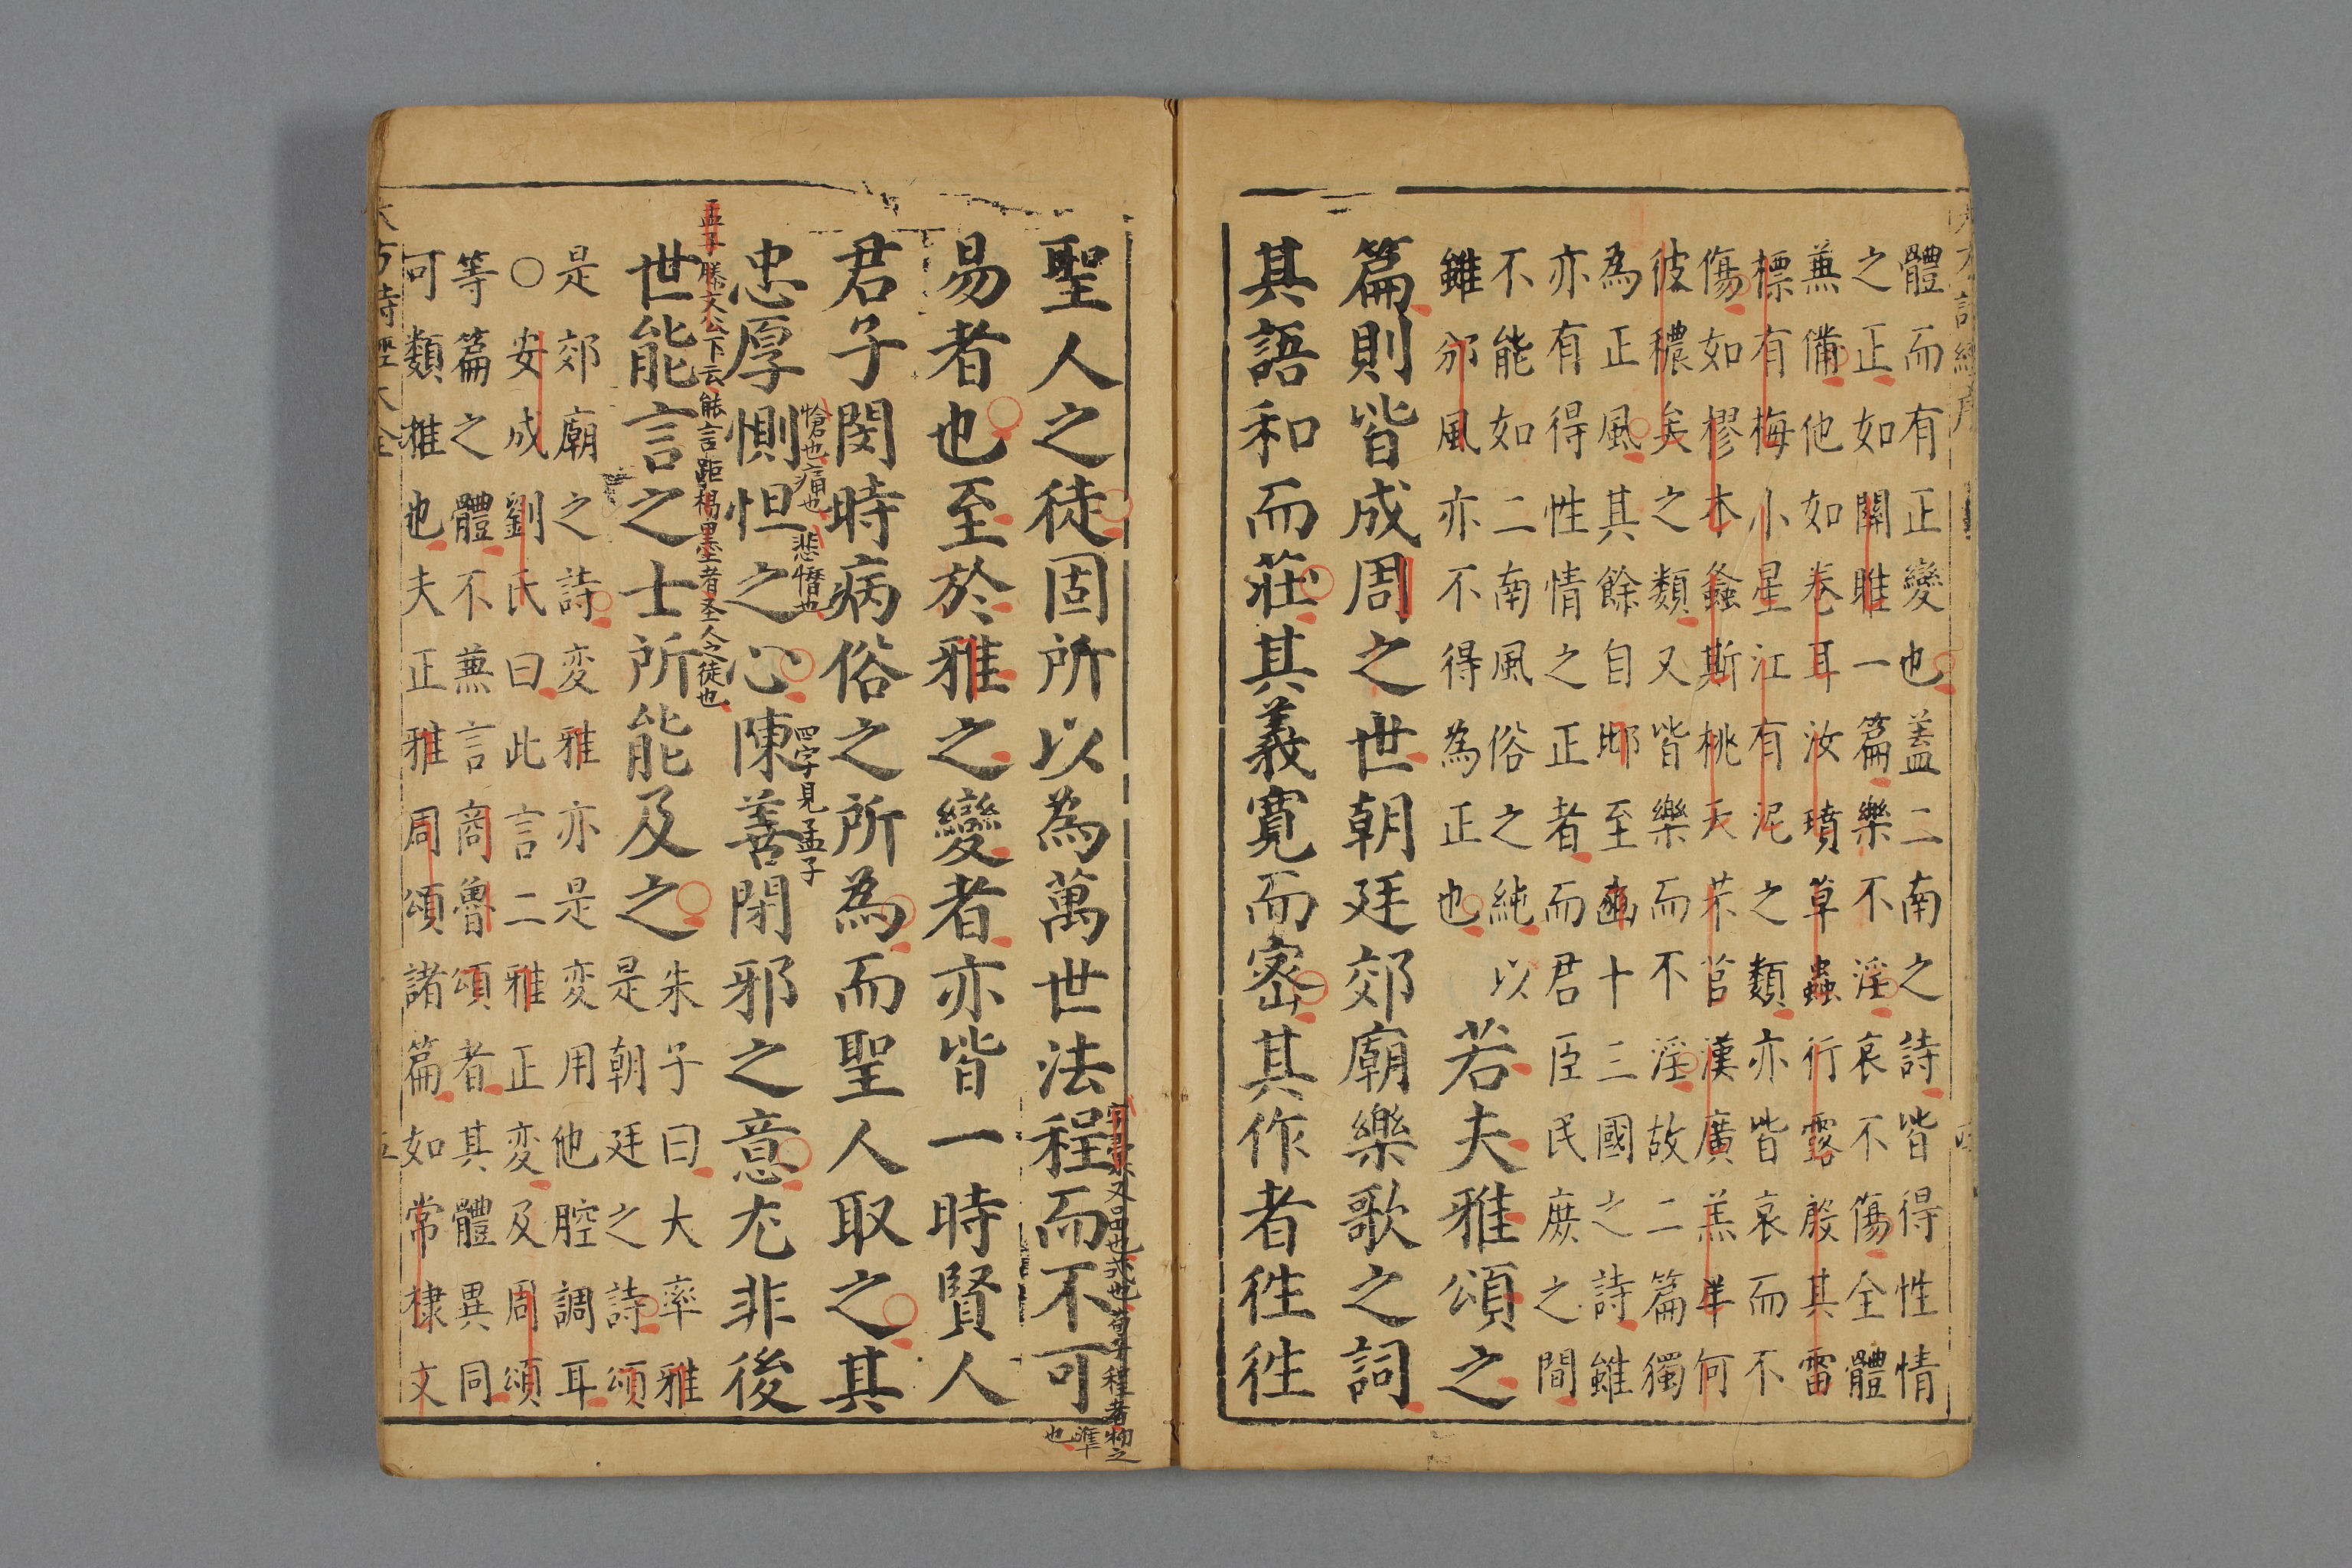 體而有正變也蓋二南之詩皆得性情
之正如關雎一篇樂不淫哀不傷全體
兼備他如卷耳汝墳草蟲行露殷其雷
摽有梅小星江有汜之類亦皆哀而不
傷如樛木螽斯桃夭芣苢漢廣羔羊何
彼穠矣之類又皆樂而不淫故二篇獨
為正風其餘自邶至豳十三國之詩雖
亦有得性情之正者而君臣民庶之間
不能如二南風俗之純以
雖邠風亦不得為正也
若夫雅頌之
篇則皆成周之世朝廷郊廟樂歌之詞
其語和而莊其義寬而密其作者徃徃
聖人之徒固所以為萬世法程而不可
易者也至於雅之變者亦皆一時賢人
君子閔時病俗之所為而聖人取之其
愴也痛也 悲憯也 四字見孟子
忠厚惻怛之心陳善閉邪之意尤非後
孟子滕文公下云能言距楊墨者圣人之徒也
世能言之士所能及之
朱子曰大率雅
是朝廷之詩頌
是郊廟之詩変雅亦是変用他腔調耳
○安成劉氏曰此言二雅正変及周頌
等篇之體不兼言商魯頌者其體異同
可類推也夫正雅周頌諸篇如常棣文
大方詩經大全